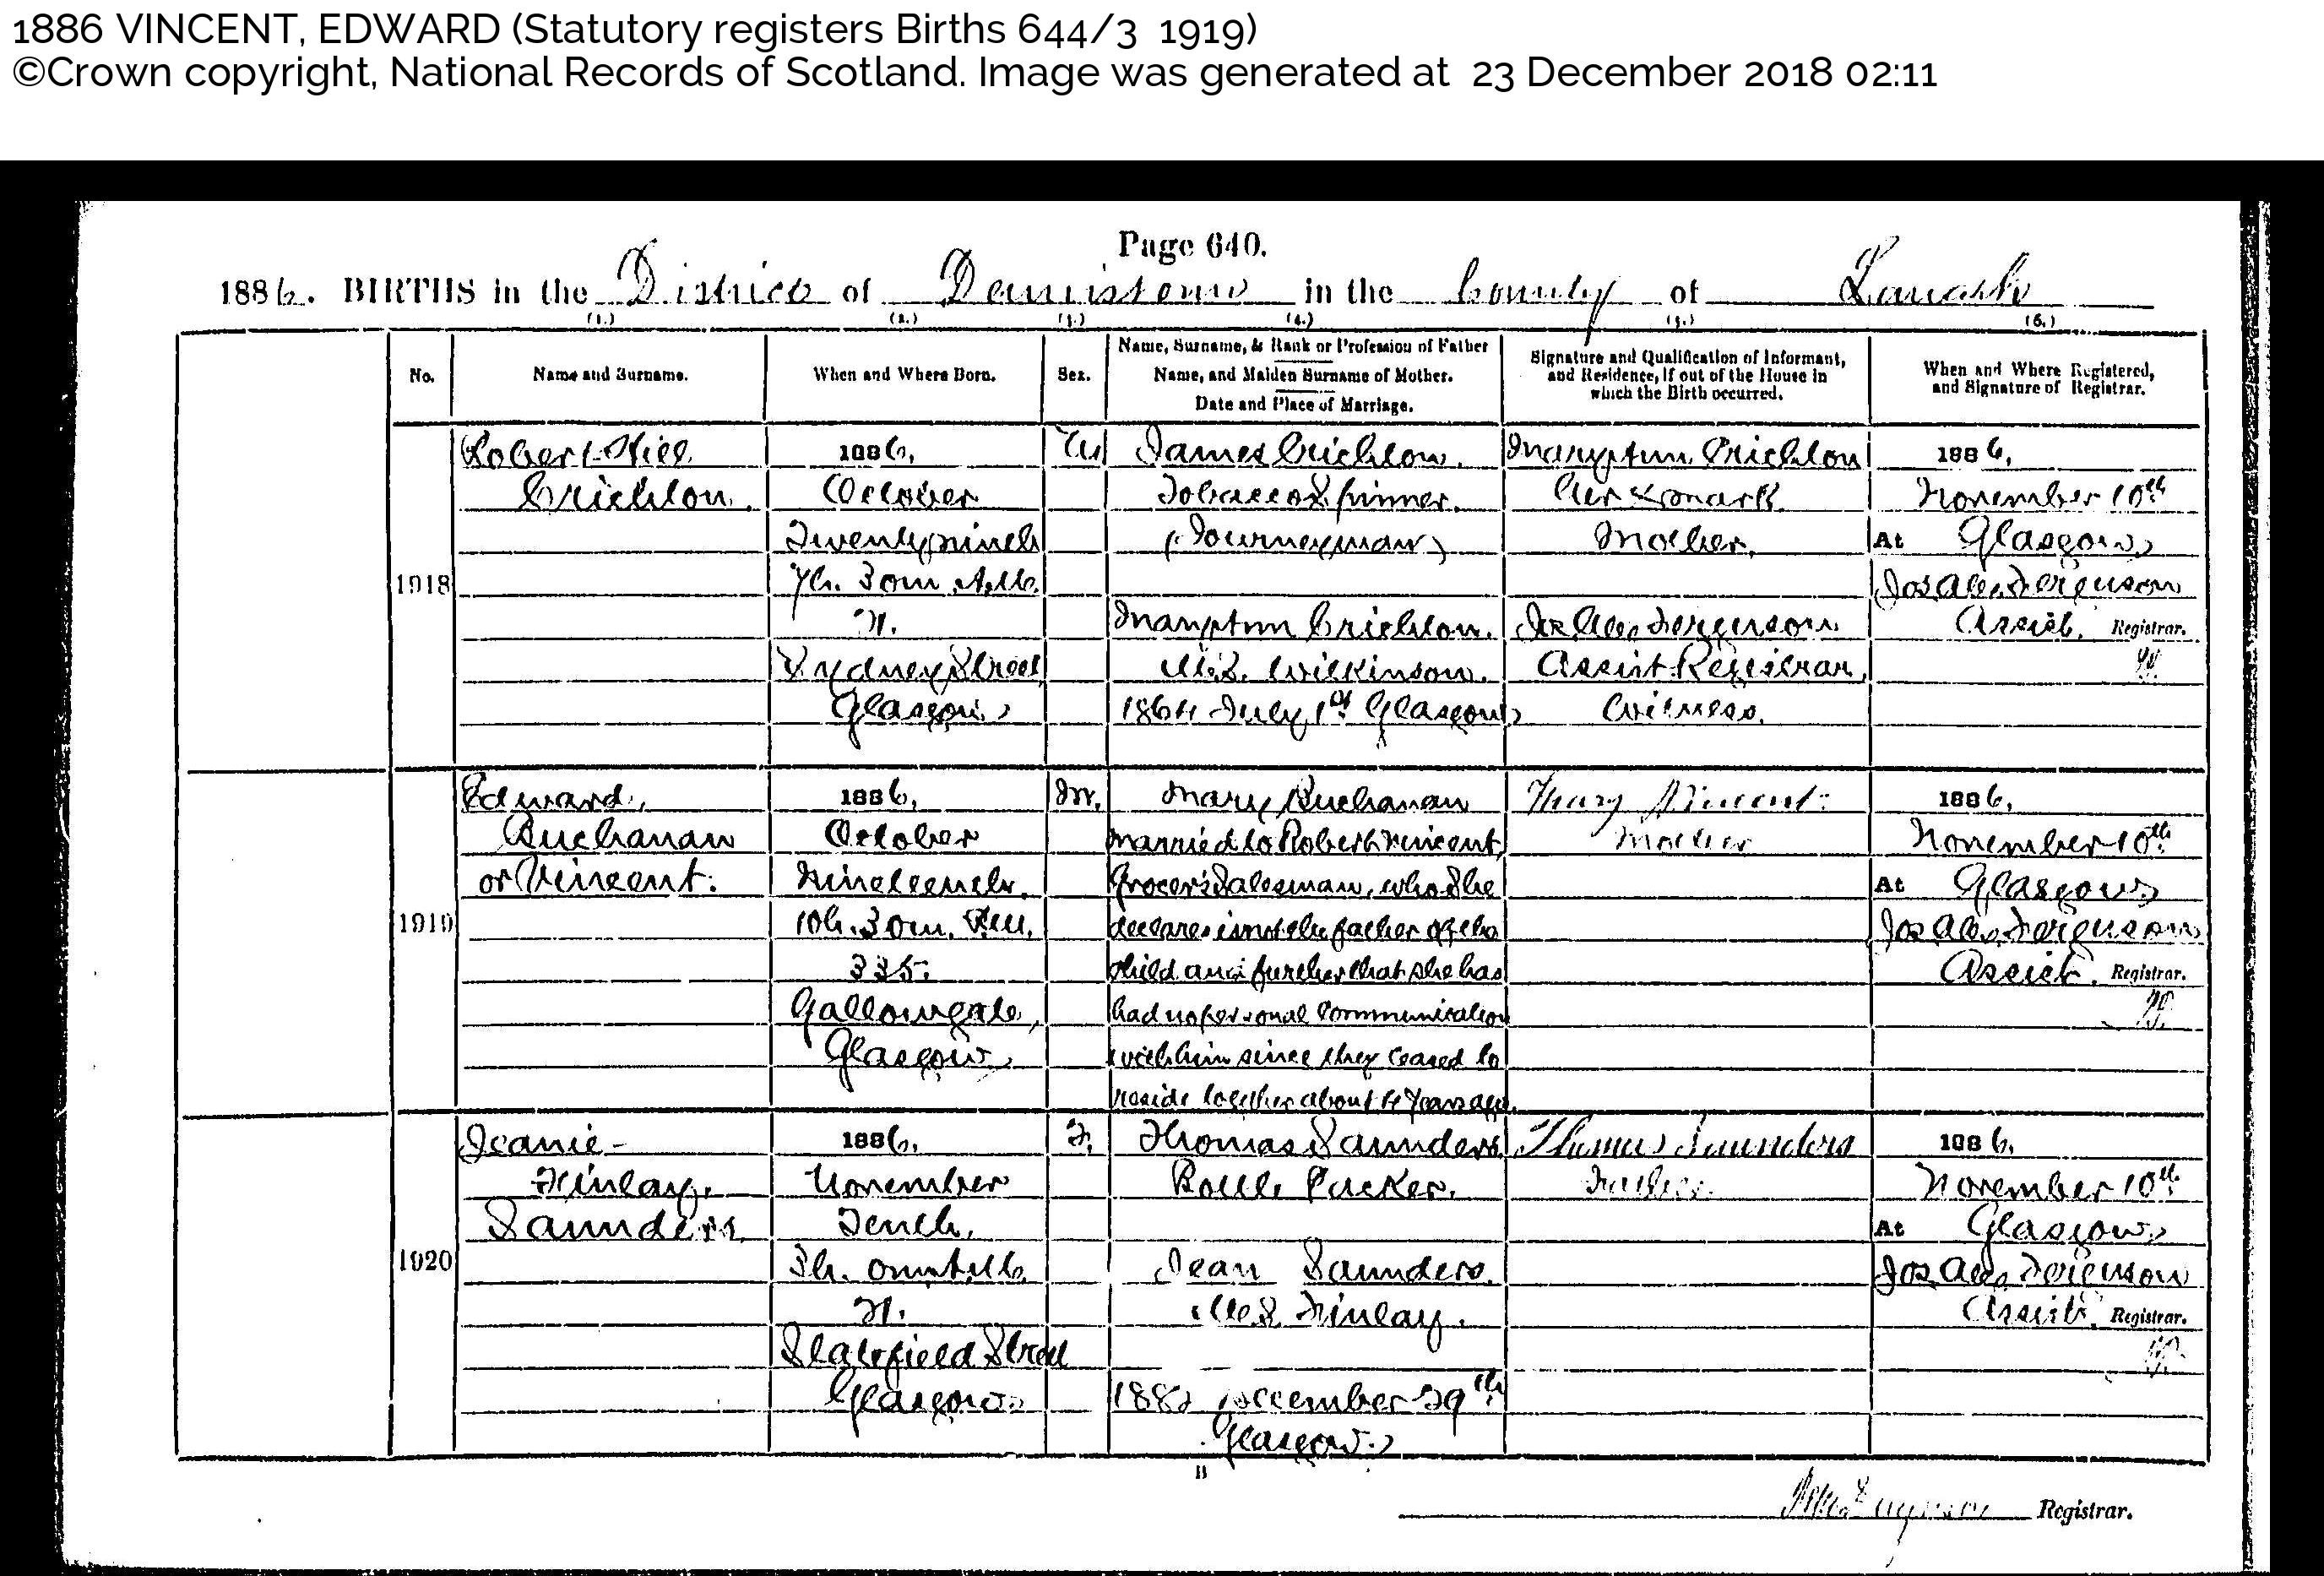 1886 VINCENT, EDWARD (Statutory registers Births 644/3 1919)
©Crown copyright, National Records of Scotland. Image was generated at 23 December 2018 02:11
Page 640.
1886. BIRTHS in the District of Dennistoun in the County of Lanark
(1.) (2.) (3.) (4.) (5.) (6.)
No.
Name and Surname.
When and Where Born.
Sex.
Name, Surname, & Rank or Profession of Father
Name, and Maiden Surname of Mother.
Date and Place of Marriage.
Signature and Qualification of Informant,
and Residence, if out of the House in
which the Birth occurred.
When and Where Registered,
and Signature of Registrar.
1918
Robert Hill
Crichton.
1886,
October
Twenty ninth
7h. 30m. A.M.
21.
Sydney Street
Glasgow
M
James Crichton.
Tobacco Spinner.
(Journeyman)
Mary Ann Crichton.
M.S. Wilkinson.
1864 July 1st Glasgow
Mary Ann Crichton
her x mark.
Mother.
Jos. Alex. Ferguson
Assist. Registrar,
Witness.
1886,
November 10th
At Glasgow
Jos. Alex. Ferguson
Assist. Registrar.
1919
Edward,
Buchanan
or Vincent.
1886,
October
Nineteenth,
10h. 30m. P.M.
335.
Gallowgate,
Glasgow
M.
Mary Buchanan
married to Robert Vincent,
Grocer's Salesman, who She
declares is not the father of the
child and further that she has
had no personal Communication
with him since they ceased to
reside together about 4 Years ago.
Mary Vincent
Mother
1886,
November 10th
At Glasgow
Jos. Alex. Ferguson
Assist. Registrar.
1920
Jeanie
Finlay.
Saunders
1886.
November
Tenth,
3h. 0m A.M.
21.
Slatefield Street
Glasgow
F.
Thomas Saunders
Bottle Packer.
Jean Saunders.
M.S. Finlay.
1882 December 29th
Glasgow
Thomas Saunders
Father
1886.
November 10th
At Glasgow
Jos. Alex. Ferguson
Assist. Registrar.
B
Registrar.